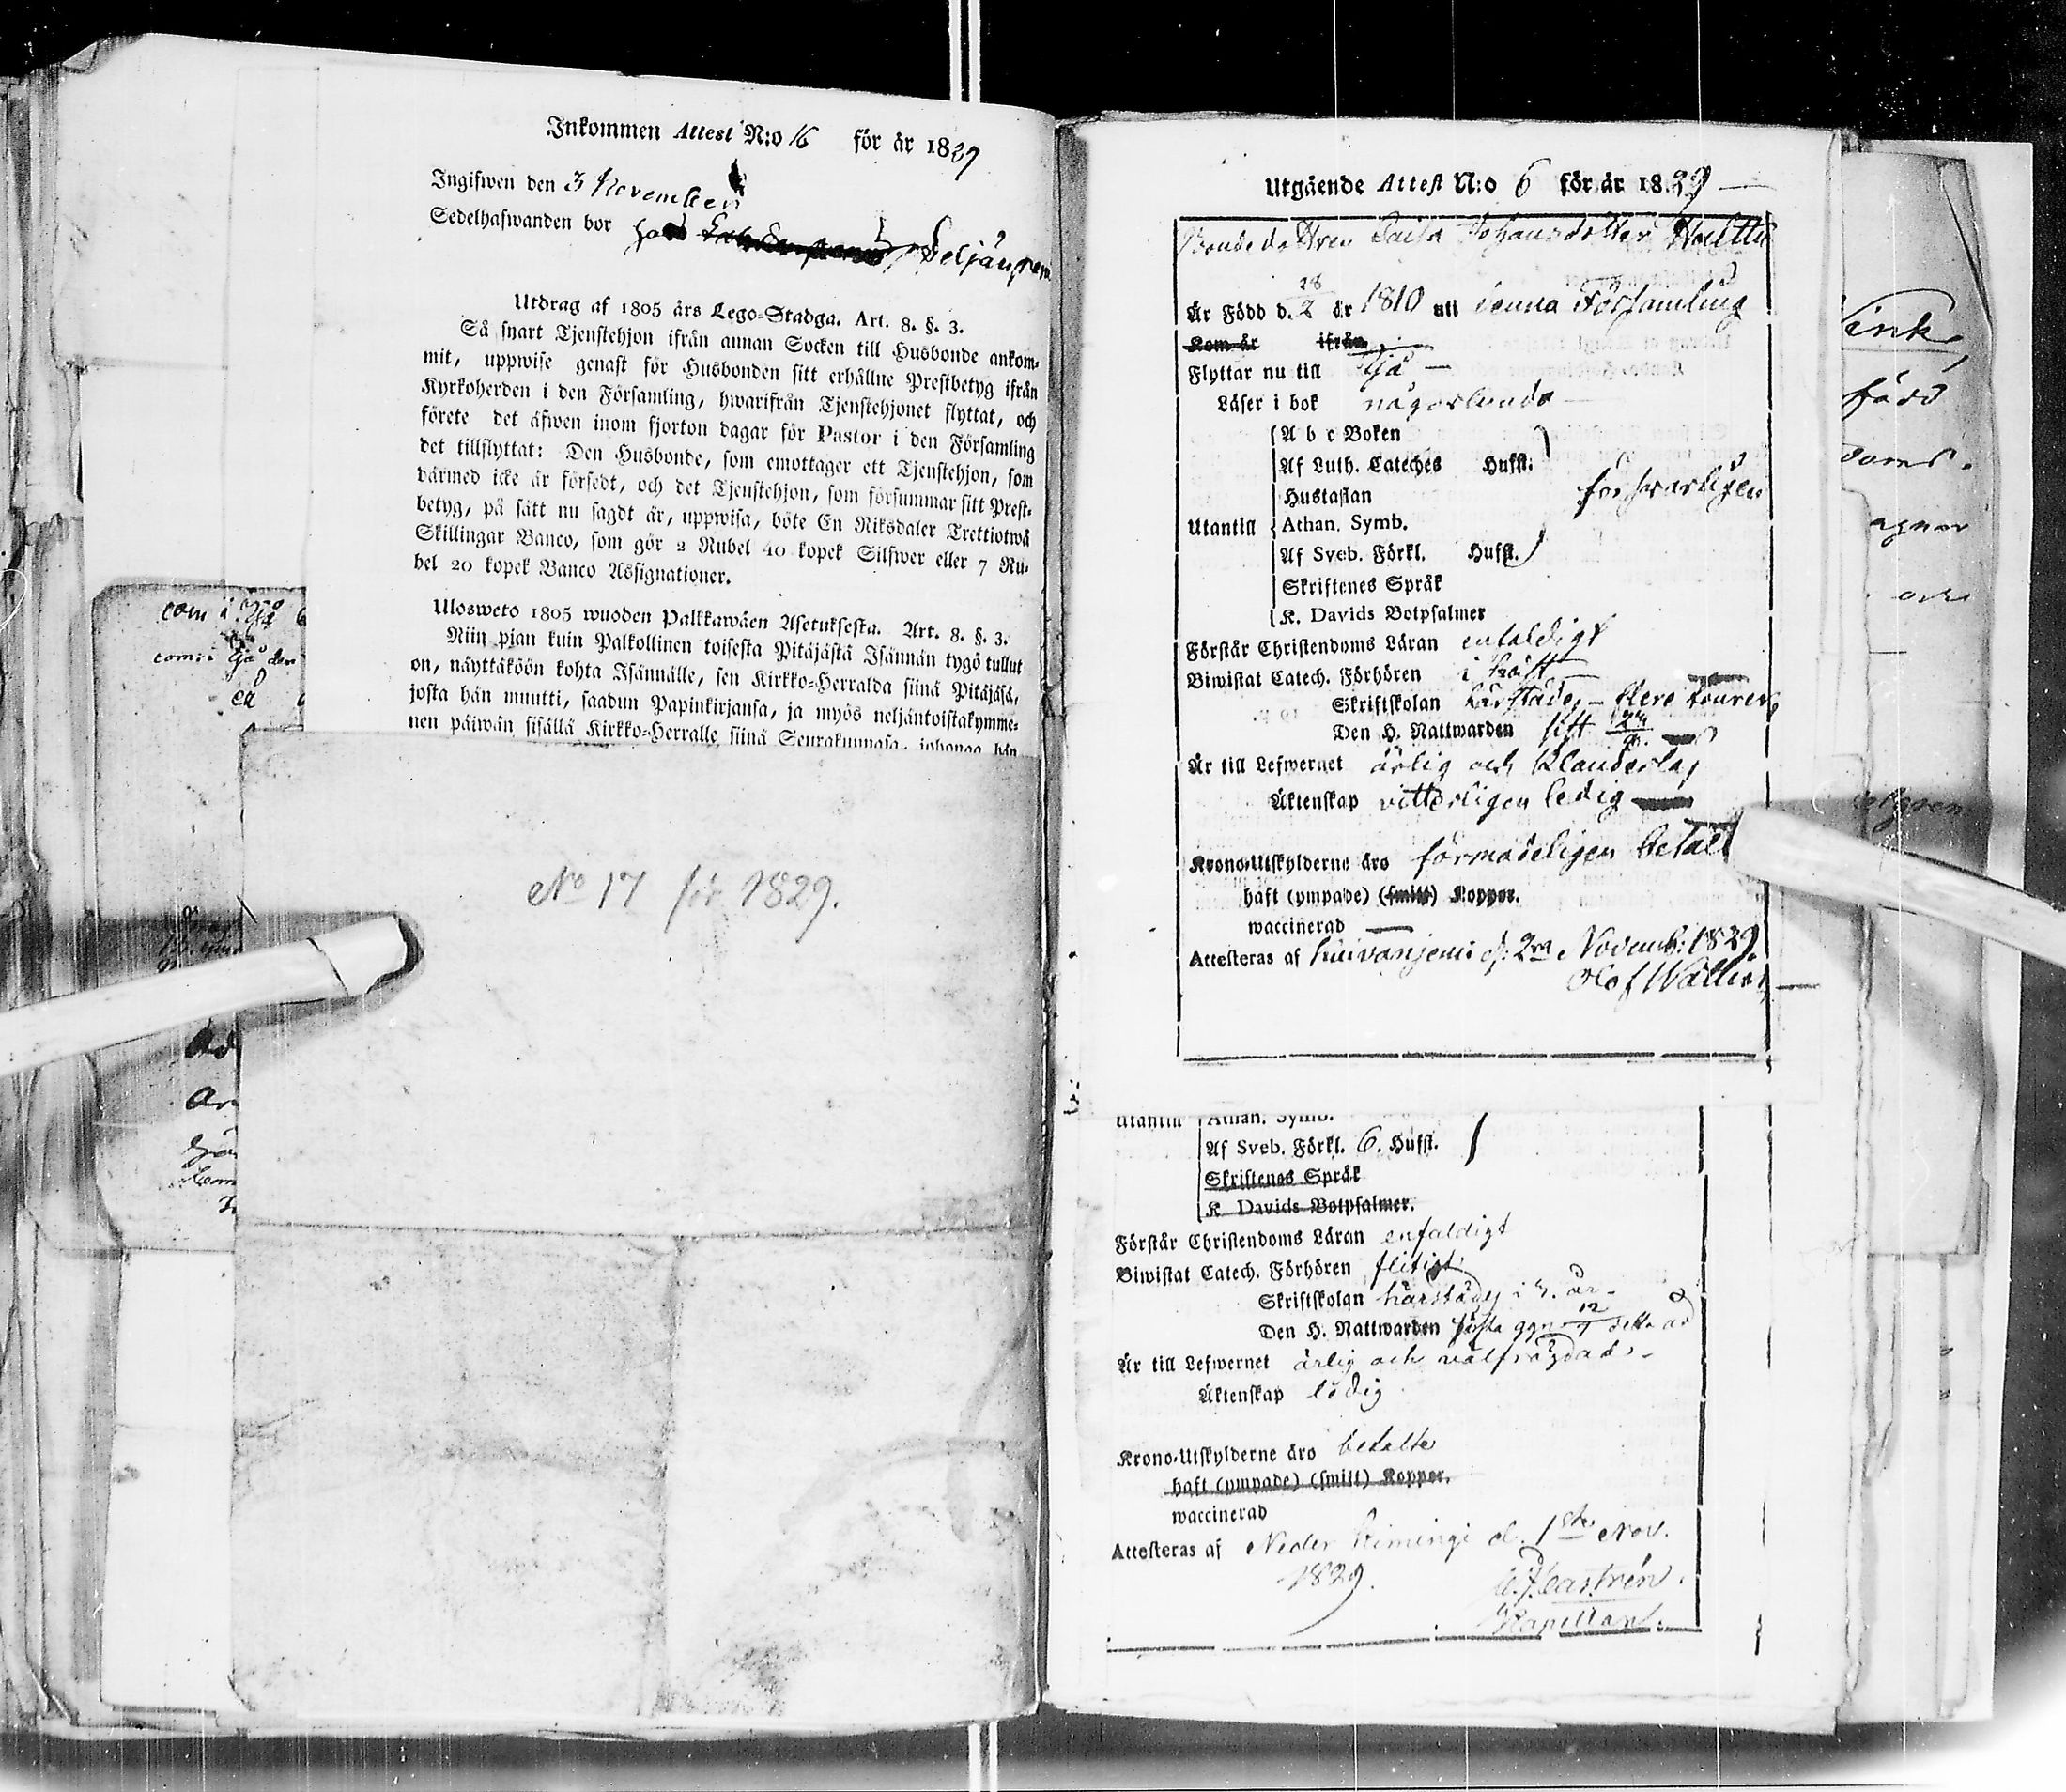 Inkommen Attest N:o 16 för år 1829
Ingifwen den 3 November
Sedelhafwanden bor hos
Utdrag af 1805 års Lego-Stadga. Art. 8. §. 3.
Så snart Tjenstehjon ifrån annan Socken till Husbonde ankom-
mit, uppwise genast för Husbonden sitt erhållne Prestbetyg ifrån
Kyrkoherden i den Församling, hwarifrån Tjenstehjonet flyttat, och
förete det äfwen inom fjorton dagar för Pastor i den Församling
det tillflyttat: Den Husbonde, som emottager ett Tjenstehjon, som
därmed icke är försedt, och det Tjenstehjon, som försummar sitt Prest-
betyg, på sätt nu sagdt är, uppwisa, böte En Riksdaler Trettiotwå
Skillingar Banco, som gör 2 Rubel 40 kopek Silfwer eller 7 Ru-
bel 20 kopek Banco Assignationer.
Ulosweto 1805 wuoden Palkkawäen Asetuksesta. Art. 8. §. 3.
Niin pian kuin Palkollinen toisesta Pitäjästä Isännän tygö tullut
on, näyttäköön kohta Isännälle, sen Kirkko-Herralda siinä Pitäjäsä,
josta hän muutti, saadun Papinkirjansa, ja myös neljäntoistakymme-
nen päiwän sisällä Kirkko-Herralle siinä Seurakunnasa, johonga hän
No 17 för 1829.
Utgående Attest N:o 6 för år 1829
Bondedottren Caisa Johansdotter
Är Född d. 28/2 år 1810 uti denna Församling
Kom år ifrån
Flyttar nu till Ijå
Läser i bok någorlunda
A b c Boken
Af Luth. Cateches Hufst.
Hustaflan försvarligen
Utantill Athan. Symb.
Af Sveb. Förkl. Hufst.
Skriftenes Språk
K. Davids Botpsalmer
Förstår Christendoms Läran enfaldigt
Biwistat Catech. Förhören i höst
Skriftskolan härstädes flere
Den H. Nattwarden sist
Är till Lefwernet ärlig och klanderlös
Äktenskap vitterligen ledig
Krono-Utskylderne äro förmodeligen betalt
haft (ympade) (smitt) Koppor.
waccinerad
Attesteras af Kuivaniemi d. 2 Novemb: 1829
Olof Wallin
Utantill Athan. Symb.
Af Sveb. Förkl. 6. Hufst.
Skriftenes Språk
K Davids Botpsalmer.
Förstår Christendoms Läran enfaldigt
Biwistat Catech. Förhören flitigt
Skriftskolan härstädes i år
Den H. Nattwarden sista detta år
Är till Lefwernet ärlig och välfrägdad
Äktenskap ledig
Krono-Utskylderne äro betalte
haft (ympade) (smitt) Koppor.
waccinerad
Attesteras af Neder Kiimingi d. 1 Nov.
1829.
Castrén.
Kapellan.